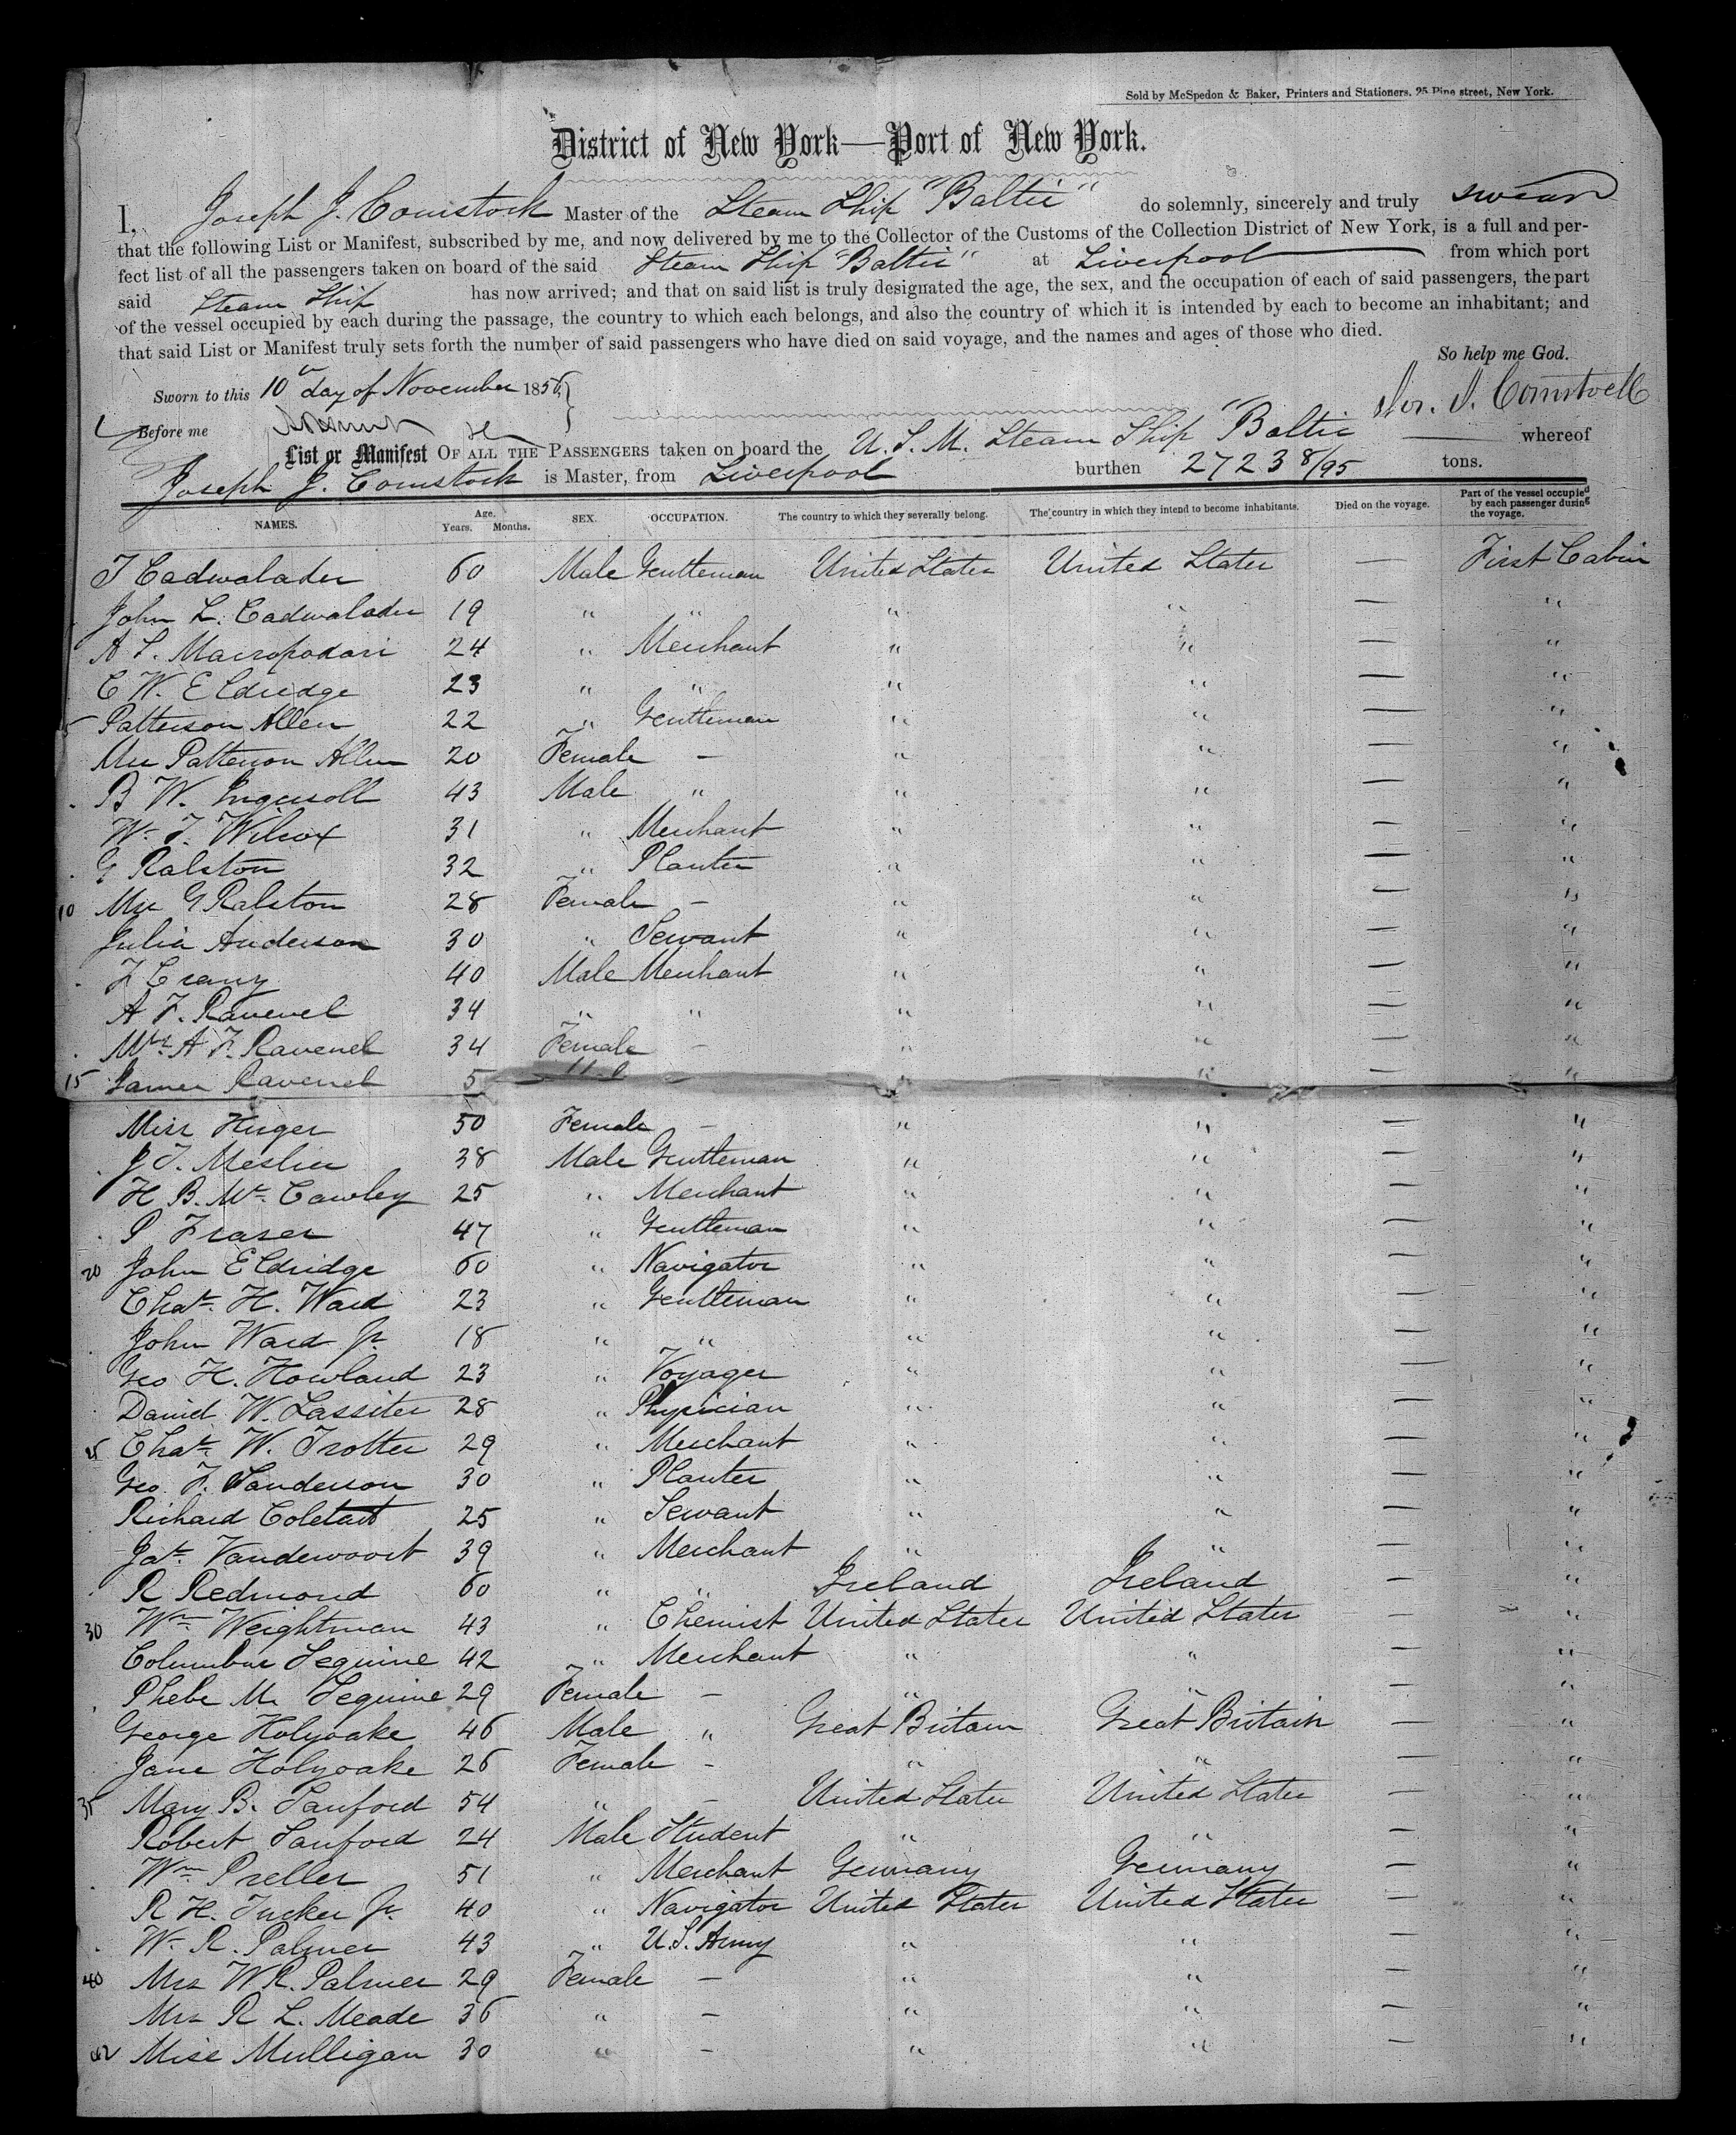 Sold by McSpedon & Baker, Printers and Stationers, 25 Pine street, New York.
District of New York—Port of New York.
I, Joseph J. Comstock Master of the Steam Ship "Baltic" do solemnly, sincerely and truly swear
that the following List or Manifest, subscribed by me, and now delivered by me to the Collector of the Customs of the Collection District of New York, is a full and per-
fect list of all the passengers taken on board of the said Steam Ship "Baltic" at Liverpool from which port
said Steam Ship has now arrived; and that on said list is truly designated the age, the sex, and the occupation of each of said passengers, the part
of the vessel occupied by each during the passage, the country to which each belongs, and also the country of which it is intended by each to become an inhabitant; and
that said List or Manifest truly sets forth the number of said passengers who have died on said voyage, and the names and ages of those who died.
So help me God.
Sworn to this 10th day of November 1856
Jos. J. Comstock
Before me
List or Manifest OF ALL THE PASSENGERS taken on board the U.S.M. Steam Ship "Baltic" whereof
Joseph J. Comstock is Master, from Liverpool burthen 2723 8/95 tons.
NAMES. Age. Years. Months. SEX. OCCUPATION. The country to which they severally belong. The country in which they intend to become inhabitants. Died on the voyage. Part of the vessel occupied by each passenger during the voyage.
T Cadwalader 60 Male Gentleman United States United States — First Cabin
John L. Cadwalader 19 " " " " — "
A S. Macropodari 24 " Merchant " " — "
C W. Eldridge 23 " " " " — "
5 Patterson Allen 22 " Gentleman " " — "
Mrs Patterson Allen 20 Female — " " — "
B W. Ingersoll 43 Male " " " — "
Wm T. Wilcox 31 " Merchant " " — "
G Ralston 32 " Planter " " — "
10 Mrs G Ralston 28 Female — " " — "
Julia Anderson 30 " Servant " " — "
40 Male Merchant " " — "
A F. Ravenel 34 " " " " — "
Mrs A F. Ravenel 34 Female — " " — "
15 James Ravenel 5 — " " — "
Miss Huger 50 Female — " " — "
J T. Meslier 38 Male Gentleman " " — "
H B. McCawley 25 " Merchant " " — "
P Fraser 47 " Gentleman " " — "
20 John Eldridge 60 " Navigator " " — "
Chas. H. Ward 23 " Gentleman " " — "
John Ward Jr. 18 " " " " — "
Geo H. Howland 23 " Voyager " " — "
Daniel W. Lassiter 28 " Physician " " — "
25 Chas. W. Trotter 29 " Merchant " " — "
Geo. F. Sanderson 30 " Planter " " — "
Richard 25 " Servant " " — "
Jas. Vandervoort 39 " Merchant " " — "
R Redmond 60 " " Ireland Ireland — "
30 Wm Weightman 43 " Chemist United States United States — "
Columbus Seguine 42 " Merchant " " — "
Phebe M. Seguine 29 Female — " " — "
George Holyoake 46 Male " Great Britain Great Britain — "
Jane Holyoake 26 Female — " " — "
35 Mary B. Sanford 54 " — United States United States — "
Robert Sanford 24 Male Student " " — "
Wm Preller 51 " Merchant Germany Germany — "
R H. Tucker Jr. 40 " Navigator United States United States — "
Wm R. Palmer 43 " U.S. Army " " — "
40 Mrs W.R. Palmer 29 Female — " " — "
Mrs R L. Meade 36 " — " " — "
42 Miss Mulligan 30 " — " " — "